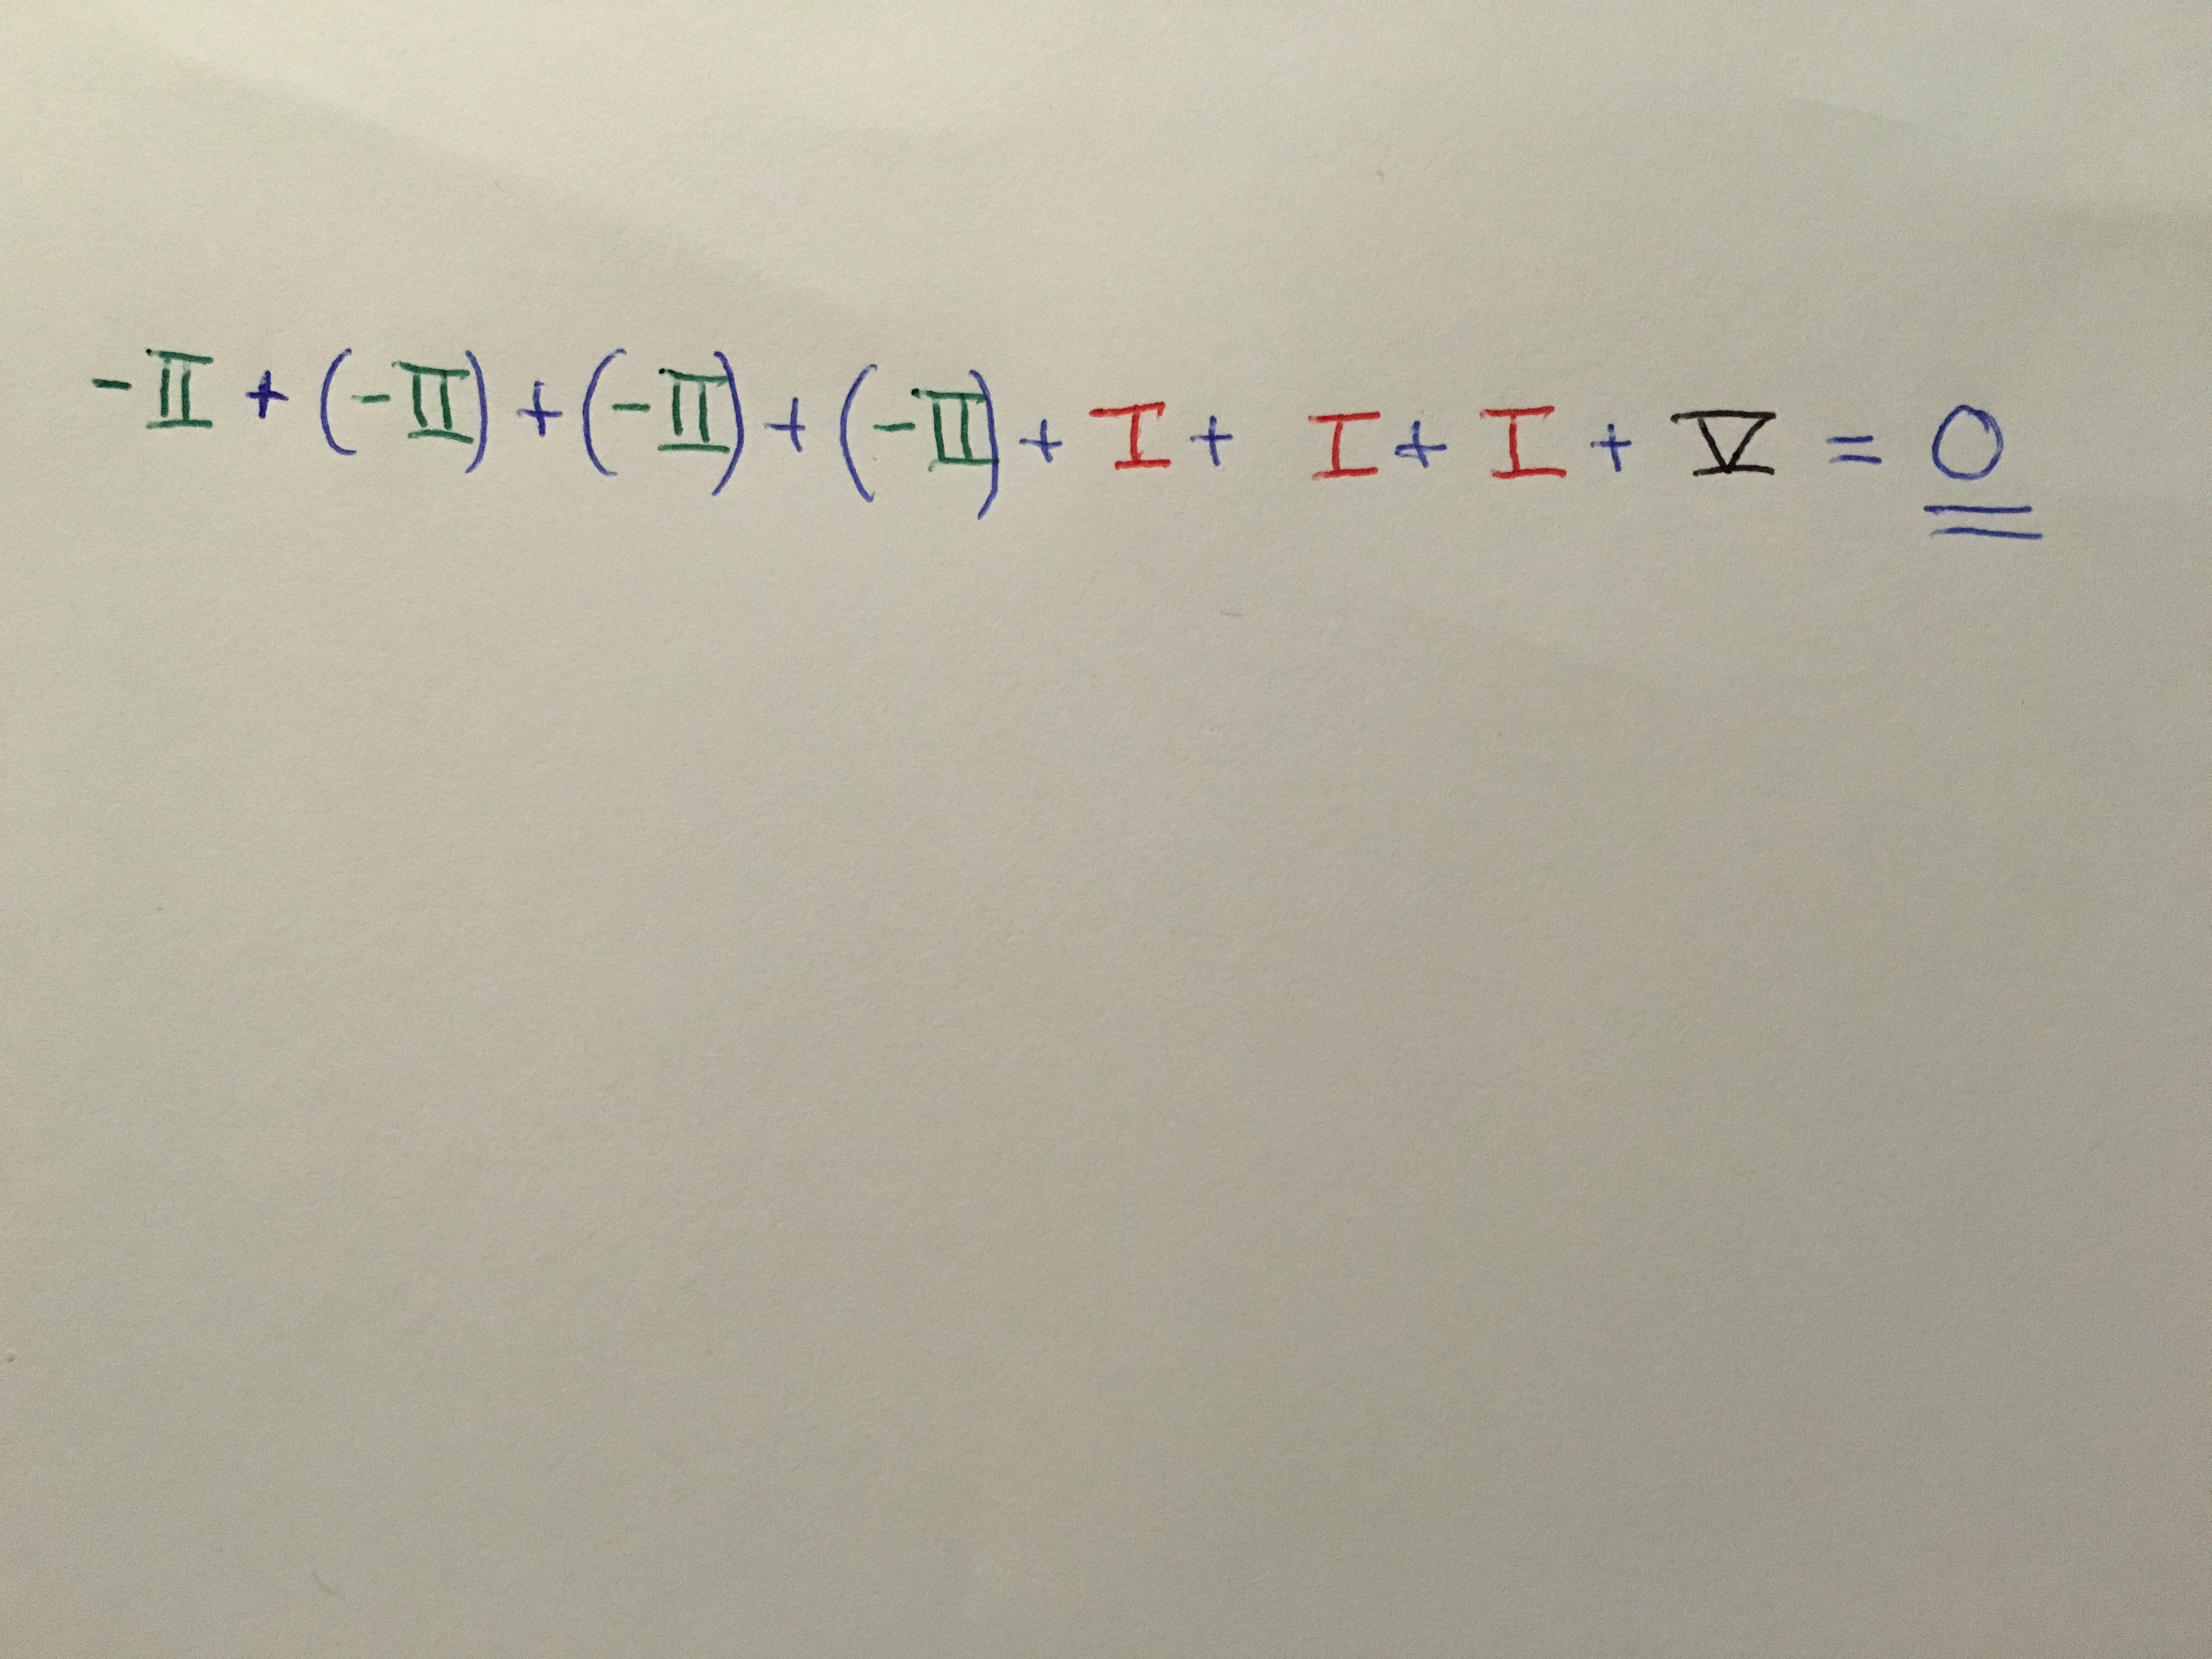 -II + (-II) + (-II) + (-II) + I + I + I + V = 0